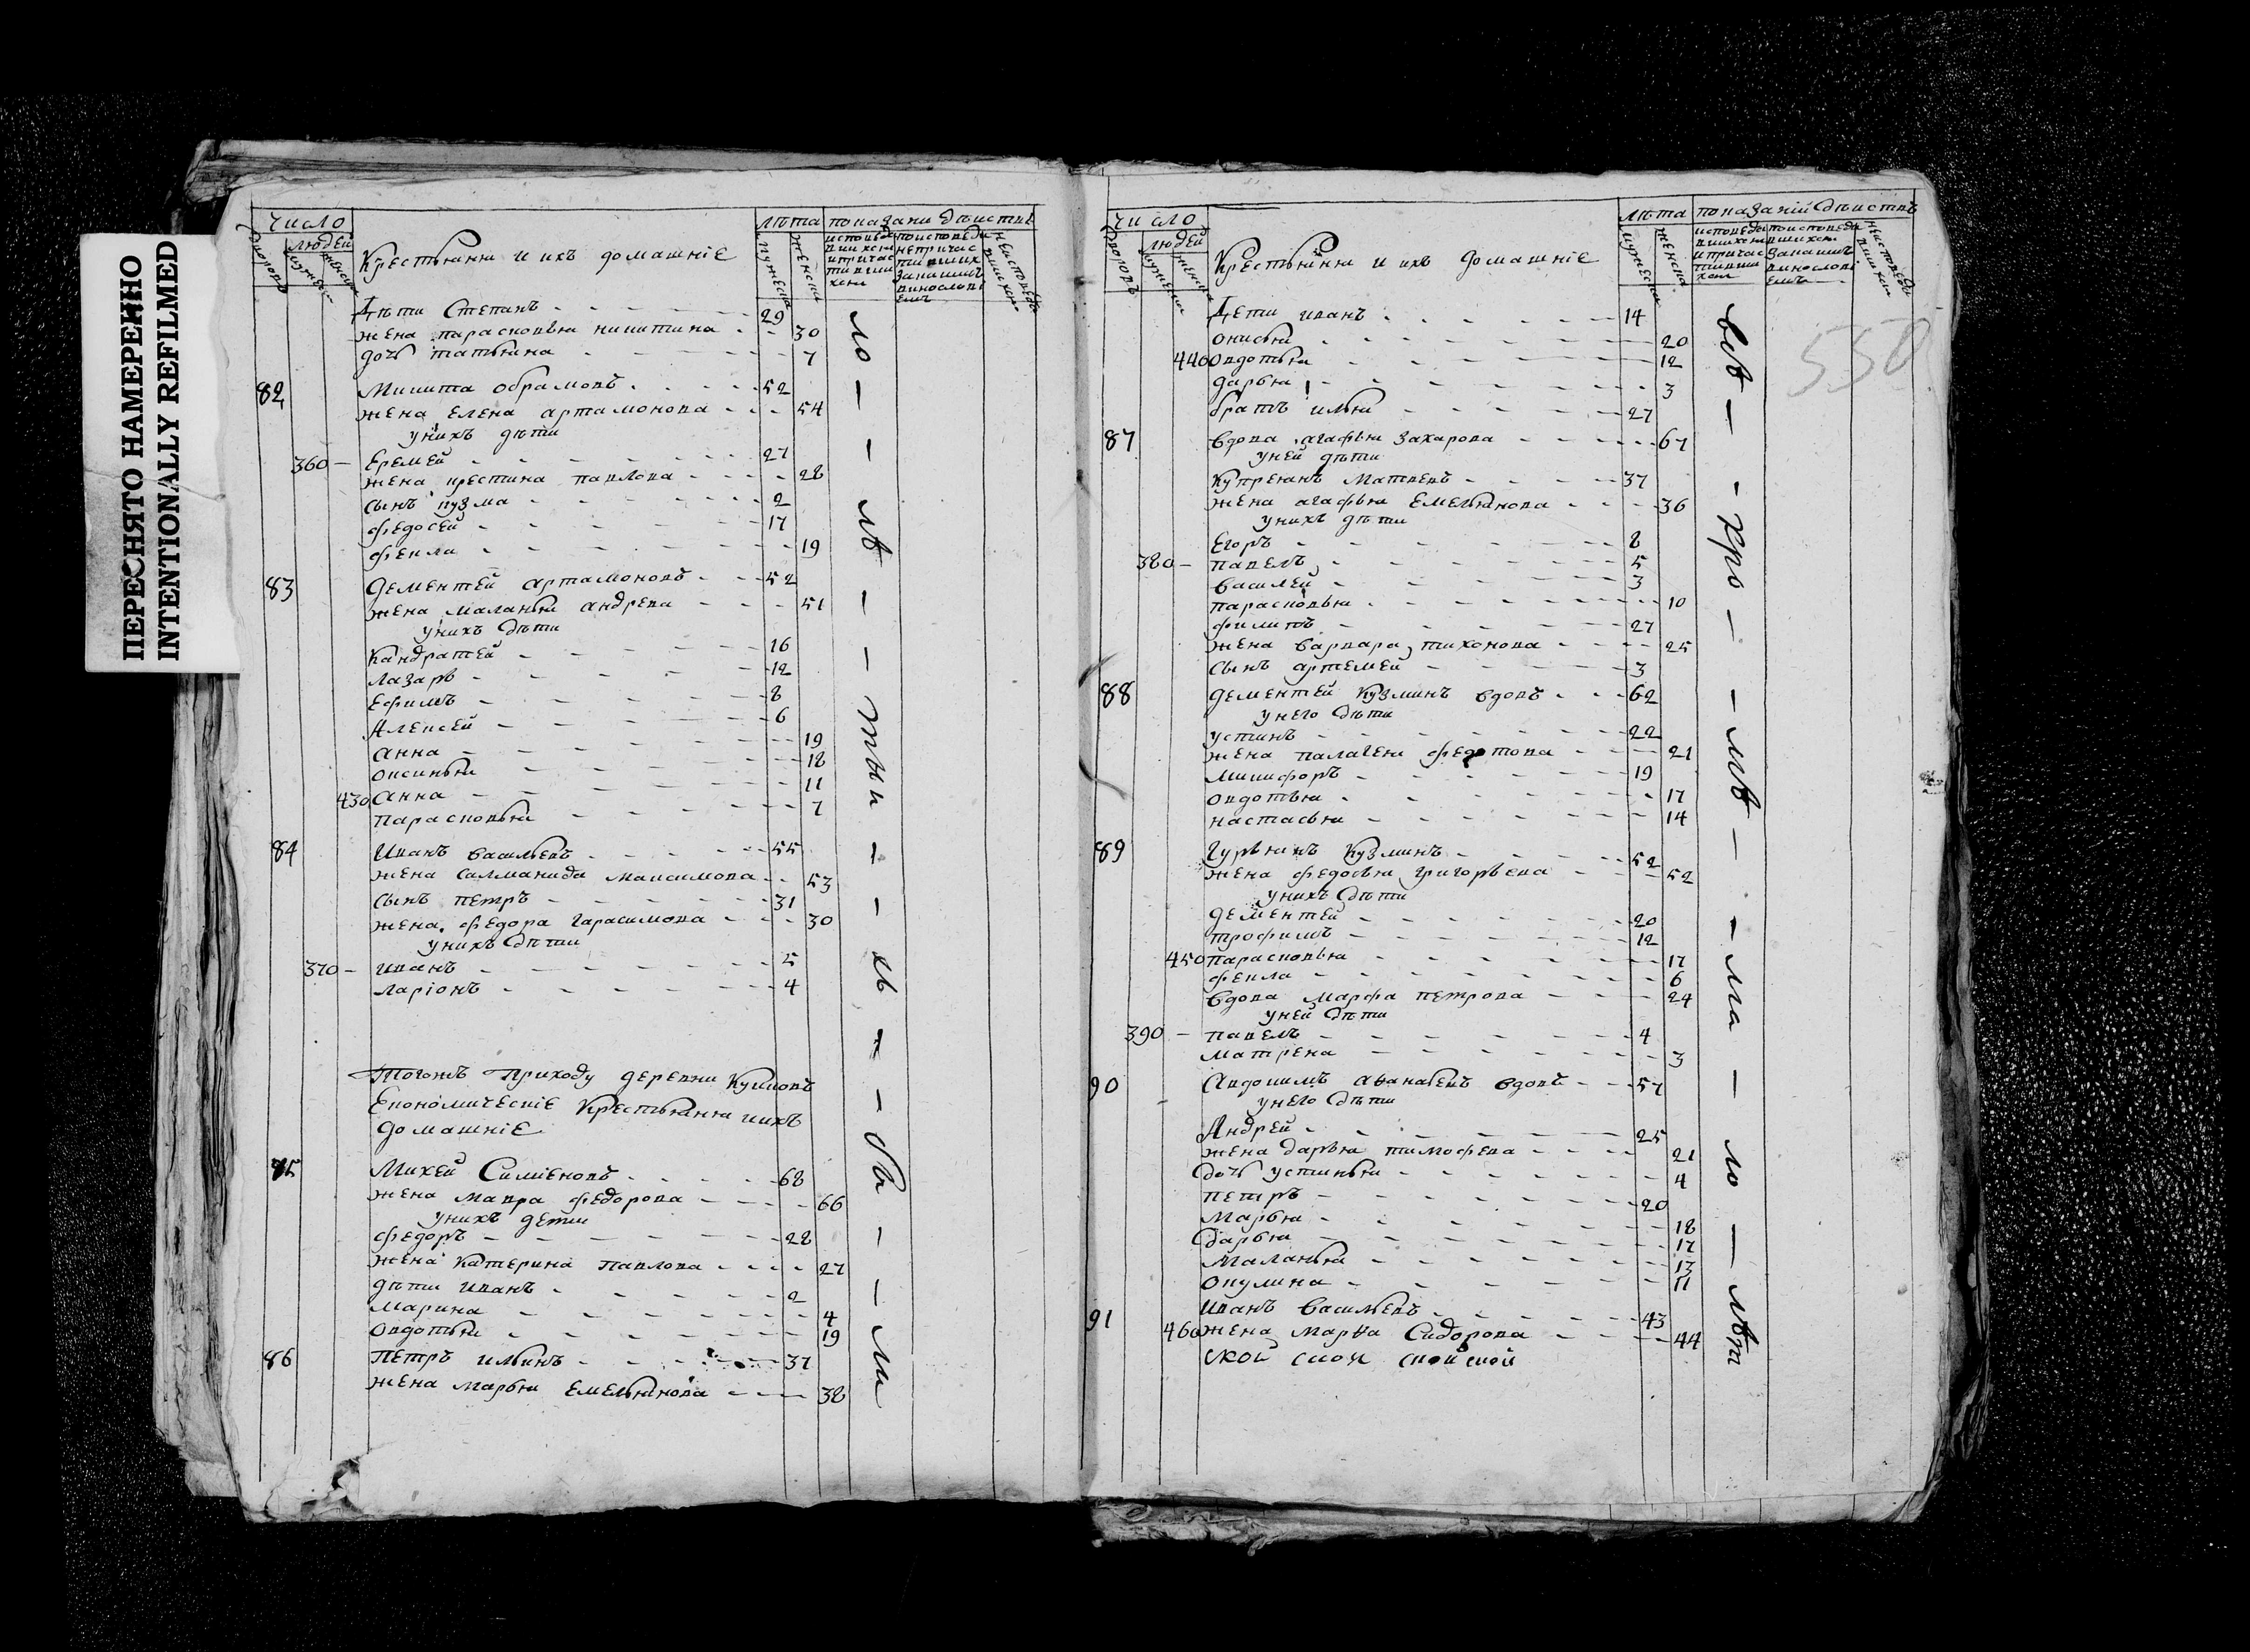 ПЕРЕСНЯТО НАМЕРЕННО
INTENTIONALLY REFILMED
число
людей
Крестьяня и ихъ домашніе
лѣта
Дѣти Степанъ 29
жена парасковья никитина 30
дочь татьяна 7
82 Микита обрамовъ 52
жена Елена артамонова 54
унихъ дѣти
360 Еремей 27
жена крестина павлова 28
сынъ кузма 2
федосей 17
фекла 19
83 Дементей артамоновъ 52
жена маланья андрева 51
унихъ дѣти
Кандратей 16
лазарь 12
Ефимъ 8
Алексей 6
анна 19
оксинья 18
430 анна 11
парасковья 7
84 Иванъ васильевъ 55
жена салманида максимова 53
сынъ петръ 31
жена федора гарасимова 30
унихъ дѣти
370 иванъ 5
ларіонъ 4
Тогожъ приходу деревни
Економическіе Крестьяня иихъ
домашніе
85 Михей Симіеновъ 68
жена мавра федорова 66
унихъ дети
федоръ 28
жена катерина павлова 27
дѣти иванъ 2
марина 4
овдотья 19
86 петръ ильинъ 37
жена марья емельянова 38
число
людей
Крестьяня и ихъ домашніе
лѣта
550
Дети иванъ 14
онисья 20
440 овдотья 12
дарья 3
братъ илья 27
87 вдова агафья захарова 67
уней дѣти
Купреянъ Матвевъ 37
жена агафья Емельянова 36
унихъ дѣти
Егоръ 8
380 павелъ 5
василей 3
парасковья 10
филипъ 27
жена варвара тихонова 25
сынъ артемей 3
88 дементей Кузминъ вдовъ 62
унего дѣти
устинъ 22
жена палагея федотова 21
микифоръ 19
овдотья 17
настасья 14
89 Гурьянъ Кузминъ 52
жена федосья григорьева 52
унихъ дѣти
дементей 20
трофимъ 12
450 парасковья 17
фекла 6
вдова марфа петрова 24
уней дѣти
390 павелъ 4
матрена 3
90 Авдокимъ аѳанасьевъ вдовъ 57
унего дѣти
Андрей 25
жена дарья тимофева 21
дочь устинья 4
петръ 20
марья 18
дарья 17
маланья 13
окулина 11
91 иванъ васильевъ 43
460 жена марѳа Сидорова 44